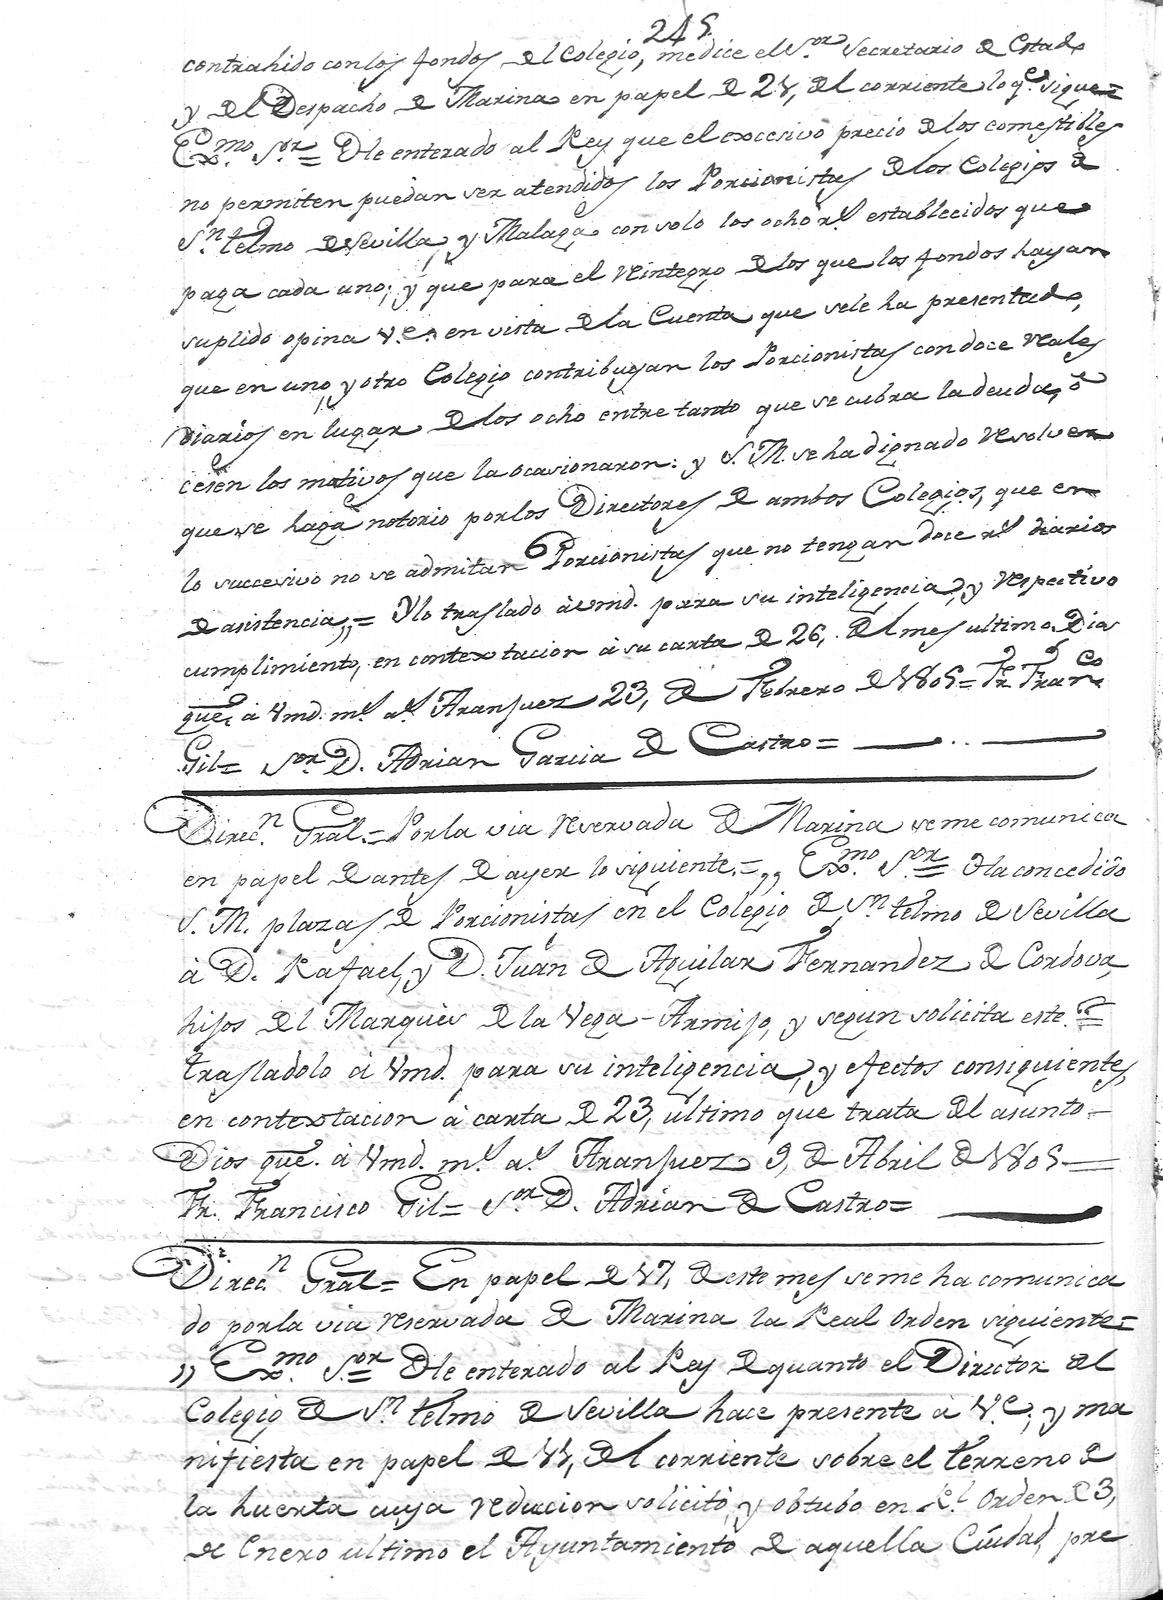 245.
contrahido con los fondos del Colegio, me dice el S.or Secretario de Estado
y del Despacho de Marina en papel de 21, del corriente lo q.e sigue=
Ex.mo S.or= He enterado al Rey que el excesivo precio de los comestibles
no permiten puedan ser atendidos los Porcionistas de los Colegios de
S.n telmo de Sevilla, y Malaga con solo los ocho r.s establecidos que
paga cada uno; y que para el reintegro de los que los fondos hayan
suplido opina V.e. en vista de la Cuenta que sele ha presentado,
que en uno, y otro Colegio contribuyan los Porcionistas con doce reales
diarios en lugar de los ocho entre tanto que se cubra la deuda, ò
cesen los motivos que la ocasionaron: y S. M. se ha dignado resolver
que se haga notorio por los Directores de ambos Colegios, que en
lo succesivo no se admitan Porcionistas que no tengan doce r.s diarios
de asistencia,,= Ylo traslado à vmd. para su inteligencia, y respectivo
cumplimiento, en contextacion à su carta de 26, del mes ultimo. Dios
gue. à Vmd. m.s a.s Aranjuez 23, de Febrero de 1805= Fr. Fran.co
Gil= S.or D. Adrian Garcia de Castro=
Direc.n Gral.= Por la via reservada de Marina se me comunica
en papel de antes de ayer lo siguiente.= ,, Ex.mo S.or= Ha concedido
S. M. plazas de Porcionistas en el Colegio de S.n telmo de Sevilla
à D. Rafael, y D. Juan de Aguilar Fernandez de Cordova,
hijos del Marques de la Vega-Armijo, y segun solicita este.=
trasladolo à Vmd. para su inteligencia, y efectos consiguientes,
en contextacion à carta de 23, ultimo que trata del asunto.=
Dios gue. à Vmd. m.s a.s Aranjuez 9, de Abril de 1805=
Fr. Francisco Gil= S.or D. Adrian de Castro=
Direc.n Gral= En papel de 17, de este mes se me ha comunica
do por la via reservada de Marina la Real Orden siguiente=
,, Ex.mo S.or= He enterado al Rey de quanto el Director del
Colegio de S.n telmo de Sevilla hace presente à V.e; y ma
nifiesta en papel de 11, del corriente sobre el terreno de
la huerta cuya reducion solicitò, y obtubo en R.l Orden de 3,
de Enero ultimo el Ayuntamiento de aquella Ciudad, pre